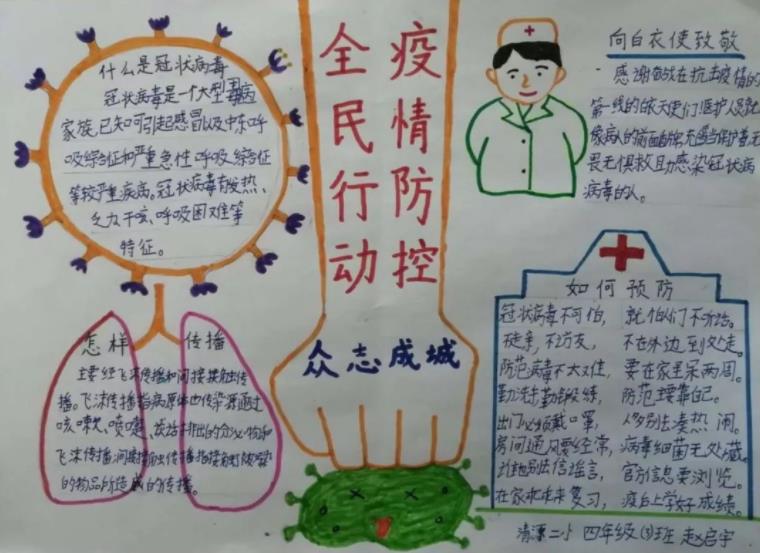 什么是冠状病毒
冠状病毒是一个大型毒病
家族,已知可引起感冒以及中东呼
吸综合征和严重急性呼吸综合征
等较严重疾病。冠状病毒有发热、
乏力干咳、呼吸困难等
特征。
全民行动
疫情防控
众志成城
向白衣使致敬
感谢奋战在抗击疫情的
第一线的白衣天使们医护人员就
像病人的
畏无惧救助感染冠状病
病毒的人。
怎样传播
主要经飞沫传播和间接接触传
播。飞沫传播指病原体由传染源通过
咳嗽、喷嚏、谈话排出的分泌物和
飞沫传播,间接接触传播指接触被
的物品所造成的传播。
如何预防
冠状病毒不可怕, 就怕人们不听话。
不走亲,不访友, 不在外边到处走。
防范病毒不太难, 要在家里呆两周。
勤洗手勤锻炼, 防范主要靠自己。
出门必须戴口罩, 人多别去凑热闹。
房间通风要经常, 病毒细菌无处藏。
别信谣言, 官方信息要浏览。
在家复习, 线上学好成绩。
清源二小 四年级(3)班 赵启宇